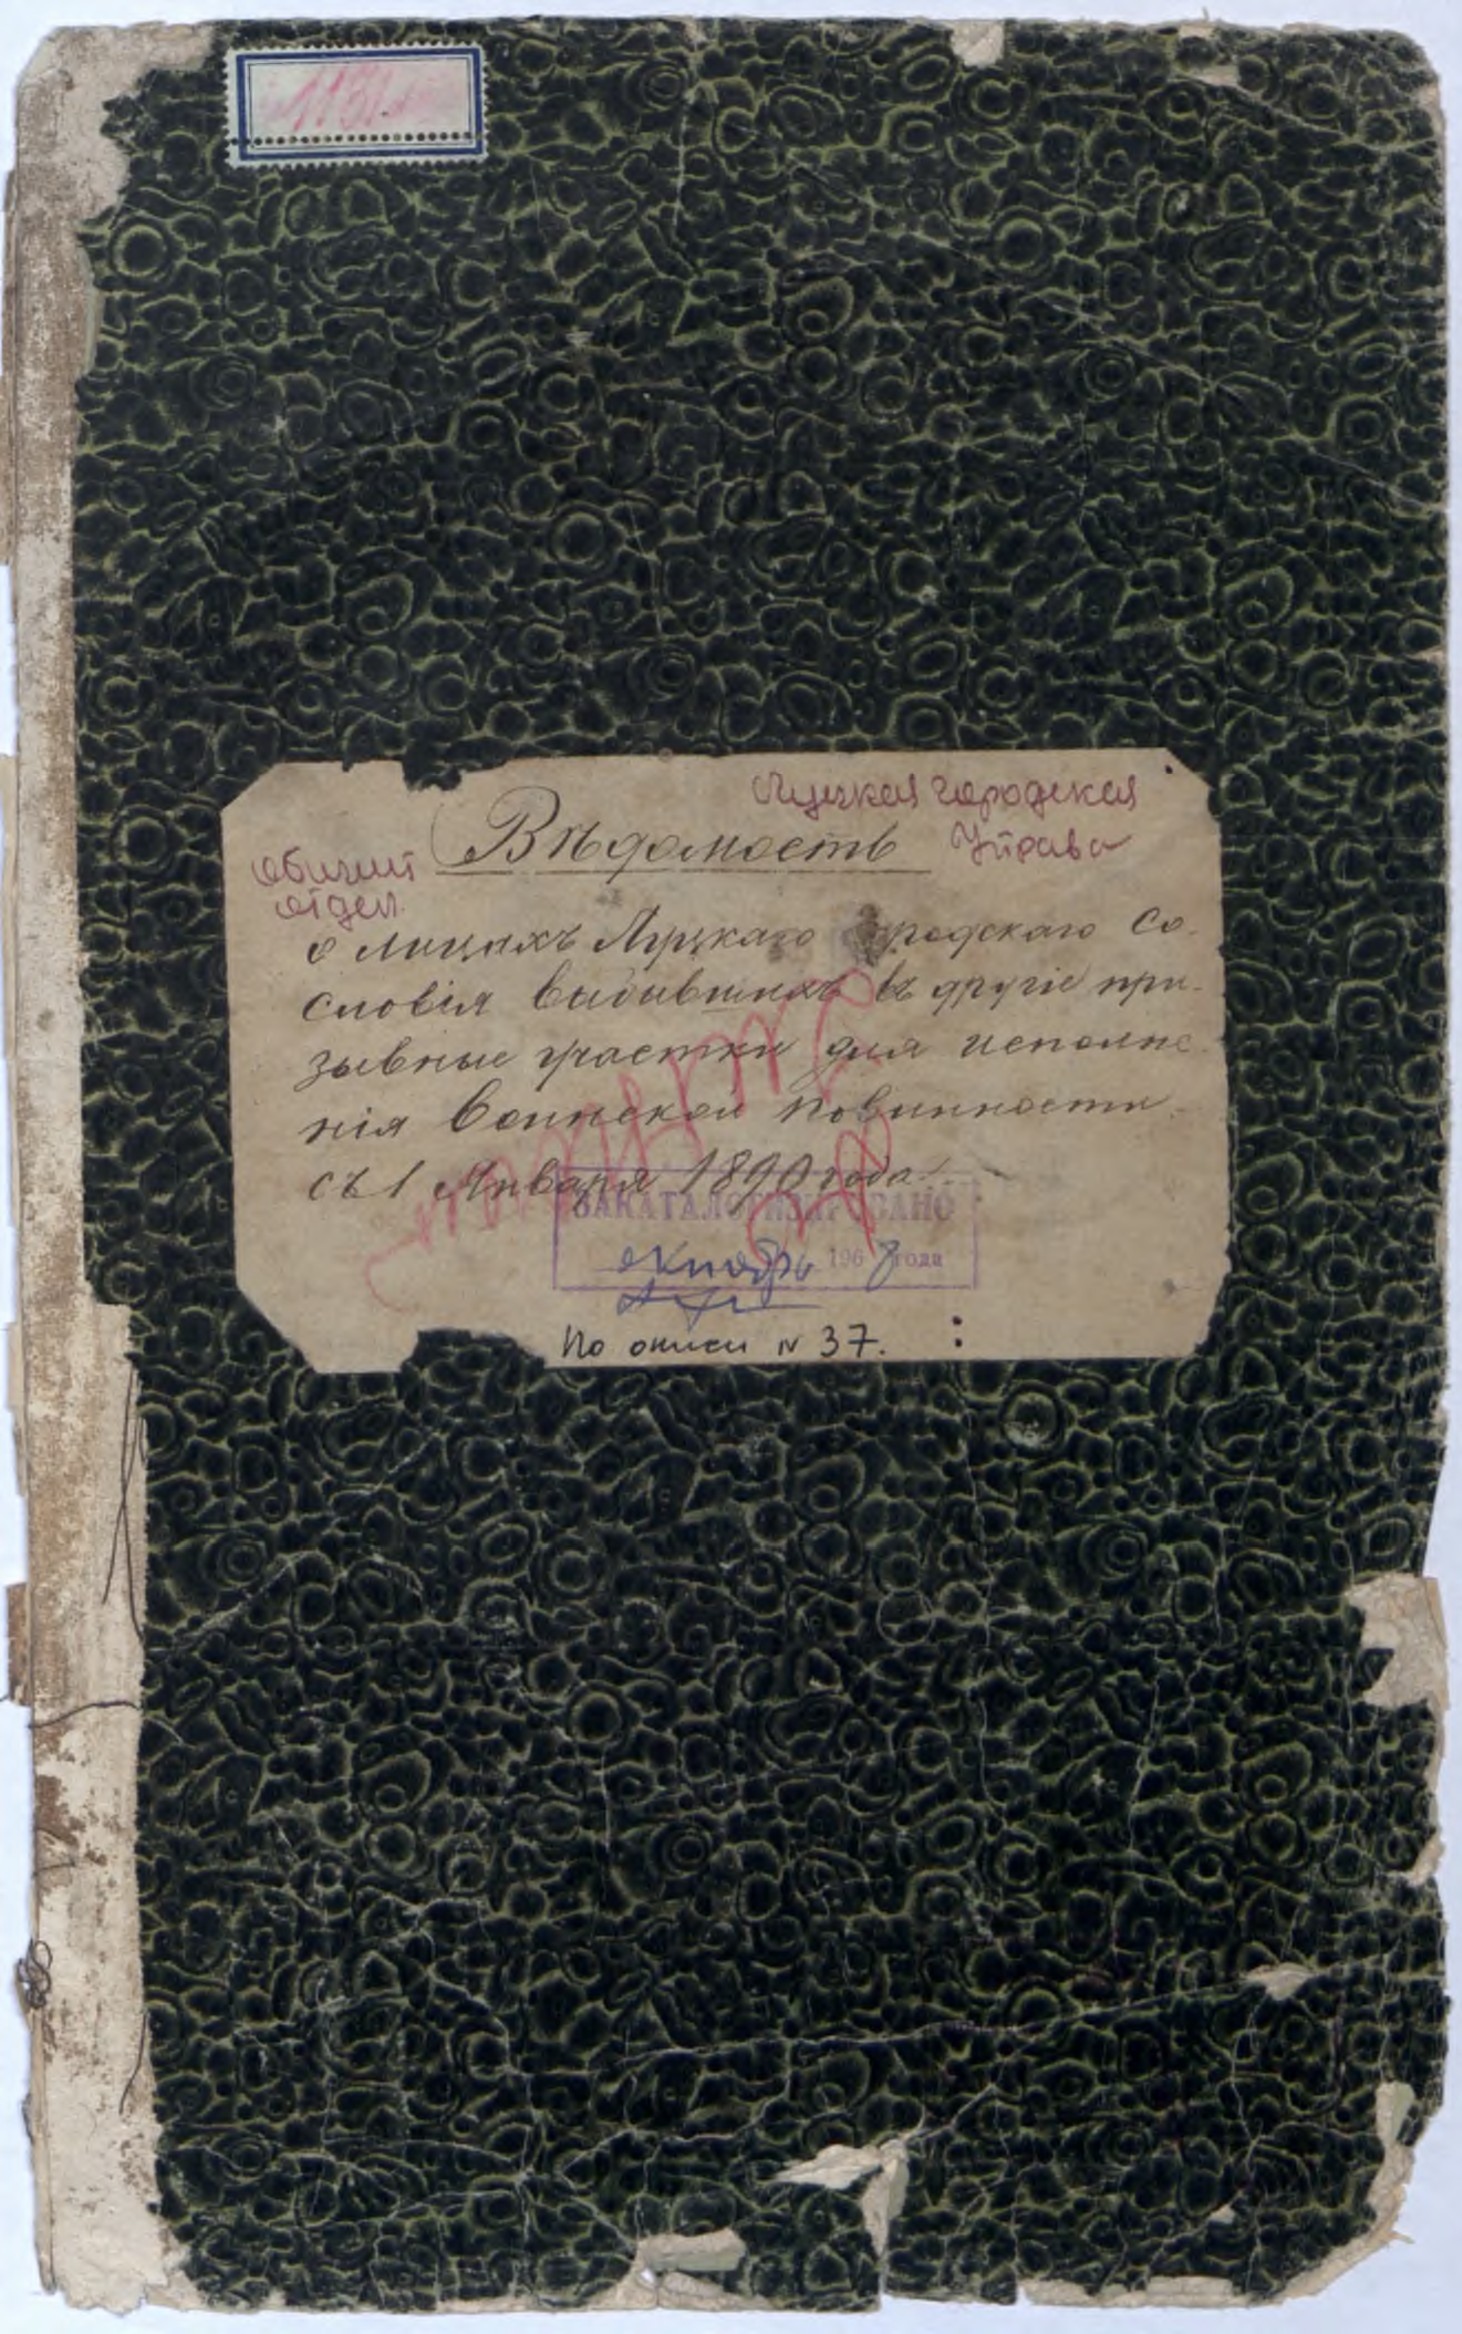 Луцкая городская
Управа
Общий
отдел
Вѣдомость
о лицахъ Луцкаго Городскаго Со-
словія выбывшихъ въ другіе при-
зывные участки для исполне-
нія Воинской повинности
съ 1 Января 1890 года
ЗАКАТАЛОГИЗИРОВАНО
октябрь 1968 года
По описи N 37.